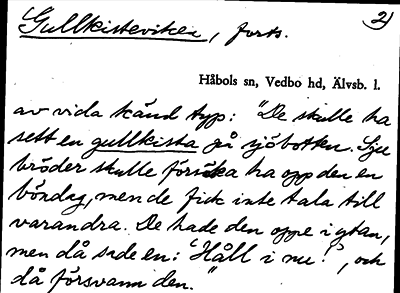 Gullkisteviken, forts. 2)
Håbols sn, Vedbo hd, Älvsb. l.
av vida känd typ: "De skulle ha
sett en gullkista på sjöbotten. Sju
bröder skulle försöka ha opp den en
böndag, men de fick inte tala till
varandra. De hade den oppe i ytan,
men då sade en: 'Håll i nu!', och
då försvann den."